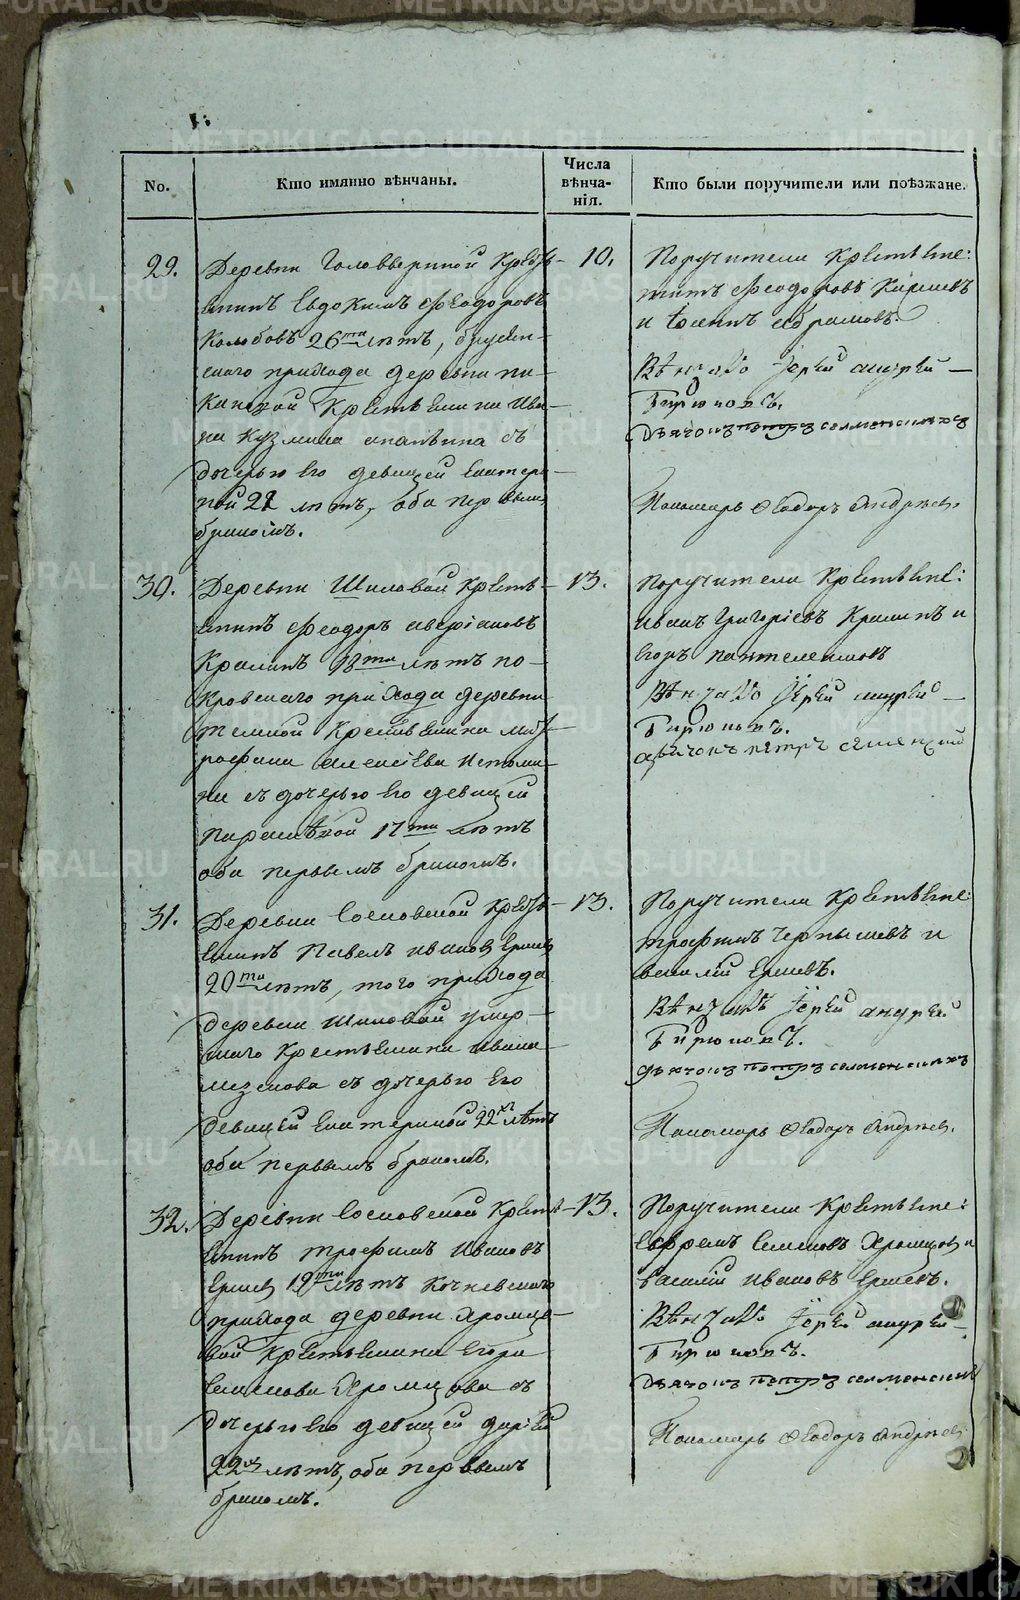 No.
Кто имянно вѣнчаны.
Числа
вѣнча-
нія.
Кто были поручители или поѣзжане.
29.
Деревни крестья-
нинъ Евдокимъ Феодоровъ
Колобовъ 26ти лѣтъ,
скаго прихода деревни
крестьянина Ива-
на Кузмина съ
дочерью его девицей Екатери-
ной 22 лѣтъ, оба первымъ
бракомъ.
10.
Поручители крестьяне:
Феодоровъ
и Абрамовъ.
Вѣнчалъ Іерей Андрей
Бирюковъ.
Дьячокъ петръ
Пономарь Ѳеодоръ Андреев.
30.
Деревни Шиловой крестья-
нинъ Феодоръ Аверіановъ
Краминъ 18ти лѣтъ по-
кровскаго прихода деревни
Темной крестьянина Мит-
рофана Алексіева
на съ дочерью его девицей
Парасковой 17ти лѣтъ
оба первымъ бракомъ.
13.
Поручители крестьяне:
Иванъ Григоріевъ Крамин и
Егоръ Пантелеимовъ
Вѣнчалъ Іерей Андрей
Бирюковъ.
дьячокъ петръ
31.
Деревни Сосновской крестья-
нинъ Павелъ Иванов Ершев
20ти лѣтъ, того прихода
деревни Шиловой умер-
шаго крестьянина Ивана
съ дочерью его
девицей Екатериной 22хъ лѣтъ
оба первымъ бракомъ.
13.
Поручители крестьяне:
Трофимъ Чернышевъ и
Василій Ершевъ.
Вѣнчалъ Іерей Андрей
Бирюковъ.
дьячокъ петръ
Пономарь Ѳеодоръ Андреев.
32.
Деревни Сосновской крестья-
нинъ Трофимъ Ивановъ
Ершев 19ти лѣтъ Кочневскаго
прихода деревни Хромцо-
вой крестьянина Егора
Семенова Хромцова съ
дочерью его девицей Дарьей
лѣтъ, оба первымъ
бракомъ.
13.
Поручители крестьяне:
Ефремъ Семеновъ Хромцов и
Василій Ивановъ Ершевъ.
Вѣнчалъ Іерей Андрей
Бирюковъ.
дьячокъ петръ
Пономарь Ѳеодоръ Андреев.
METRIKI.GASO-URAL.RU